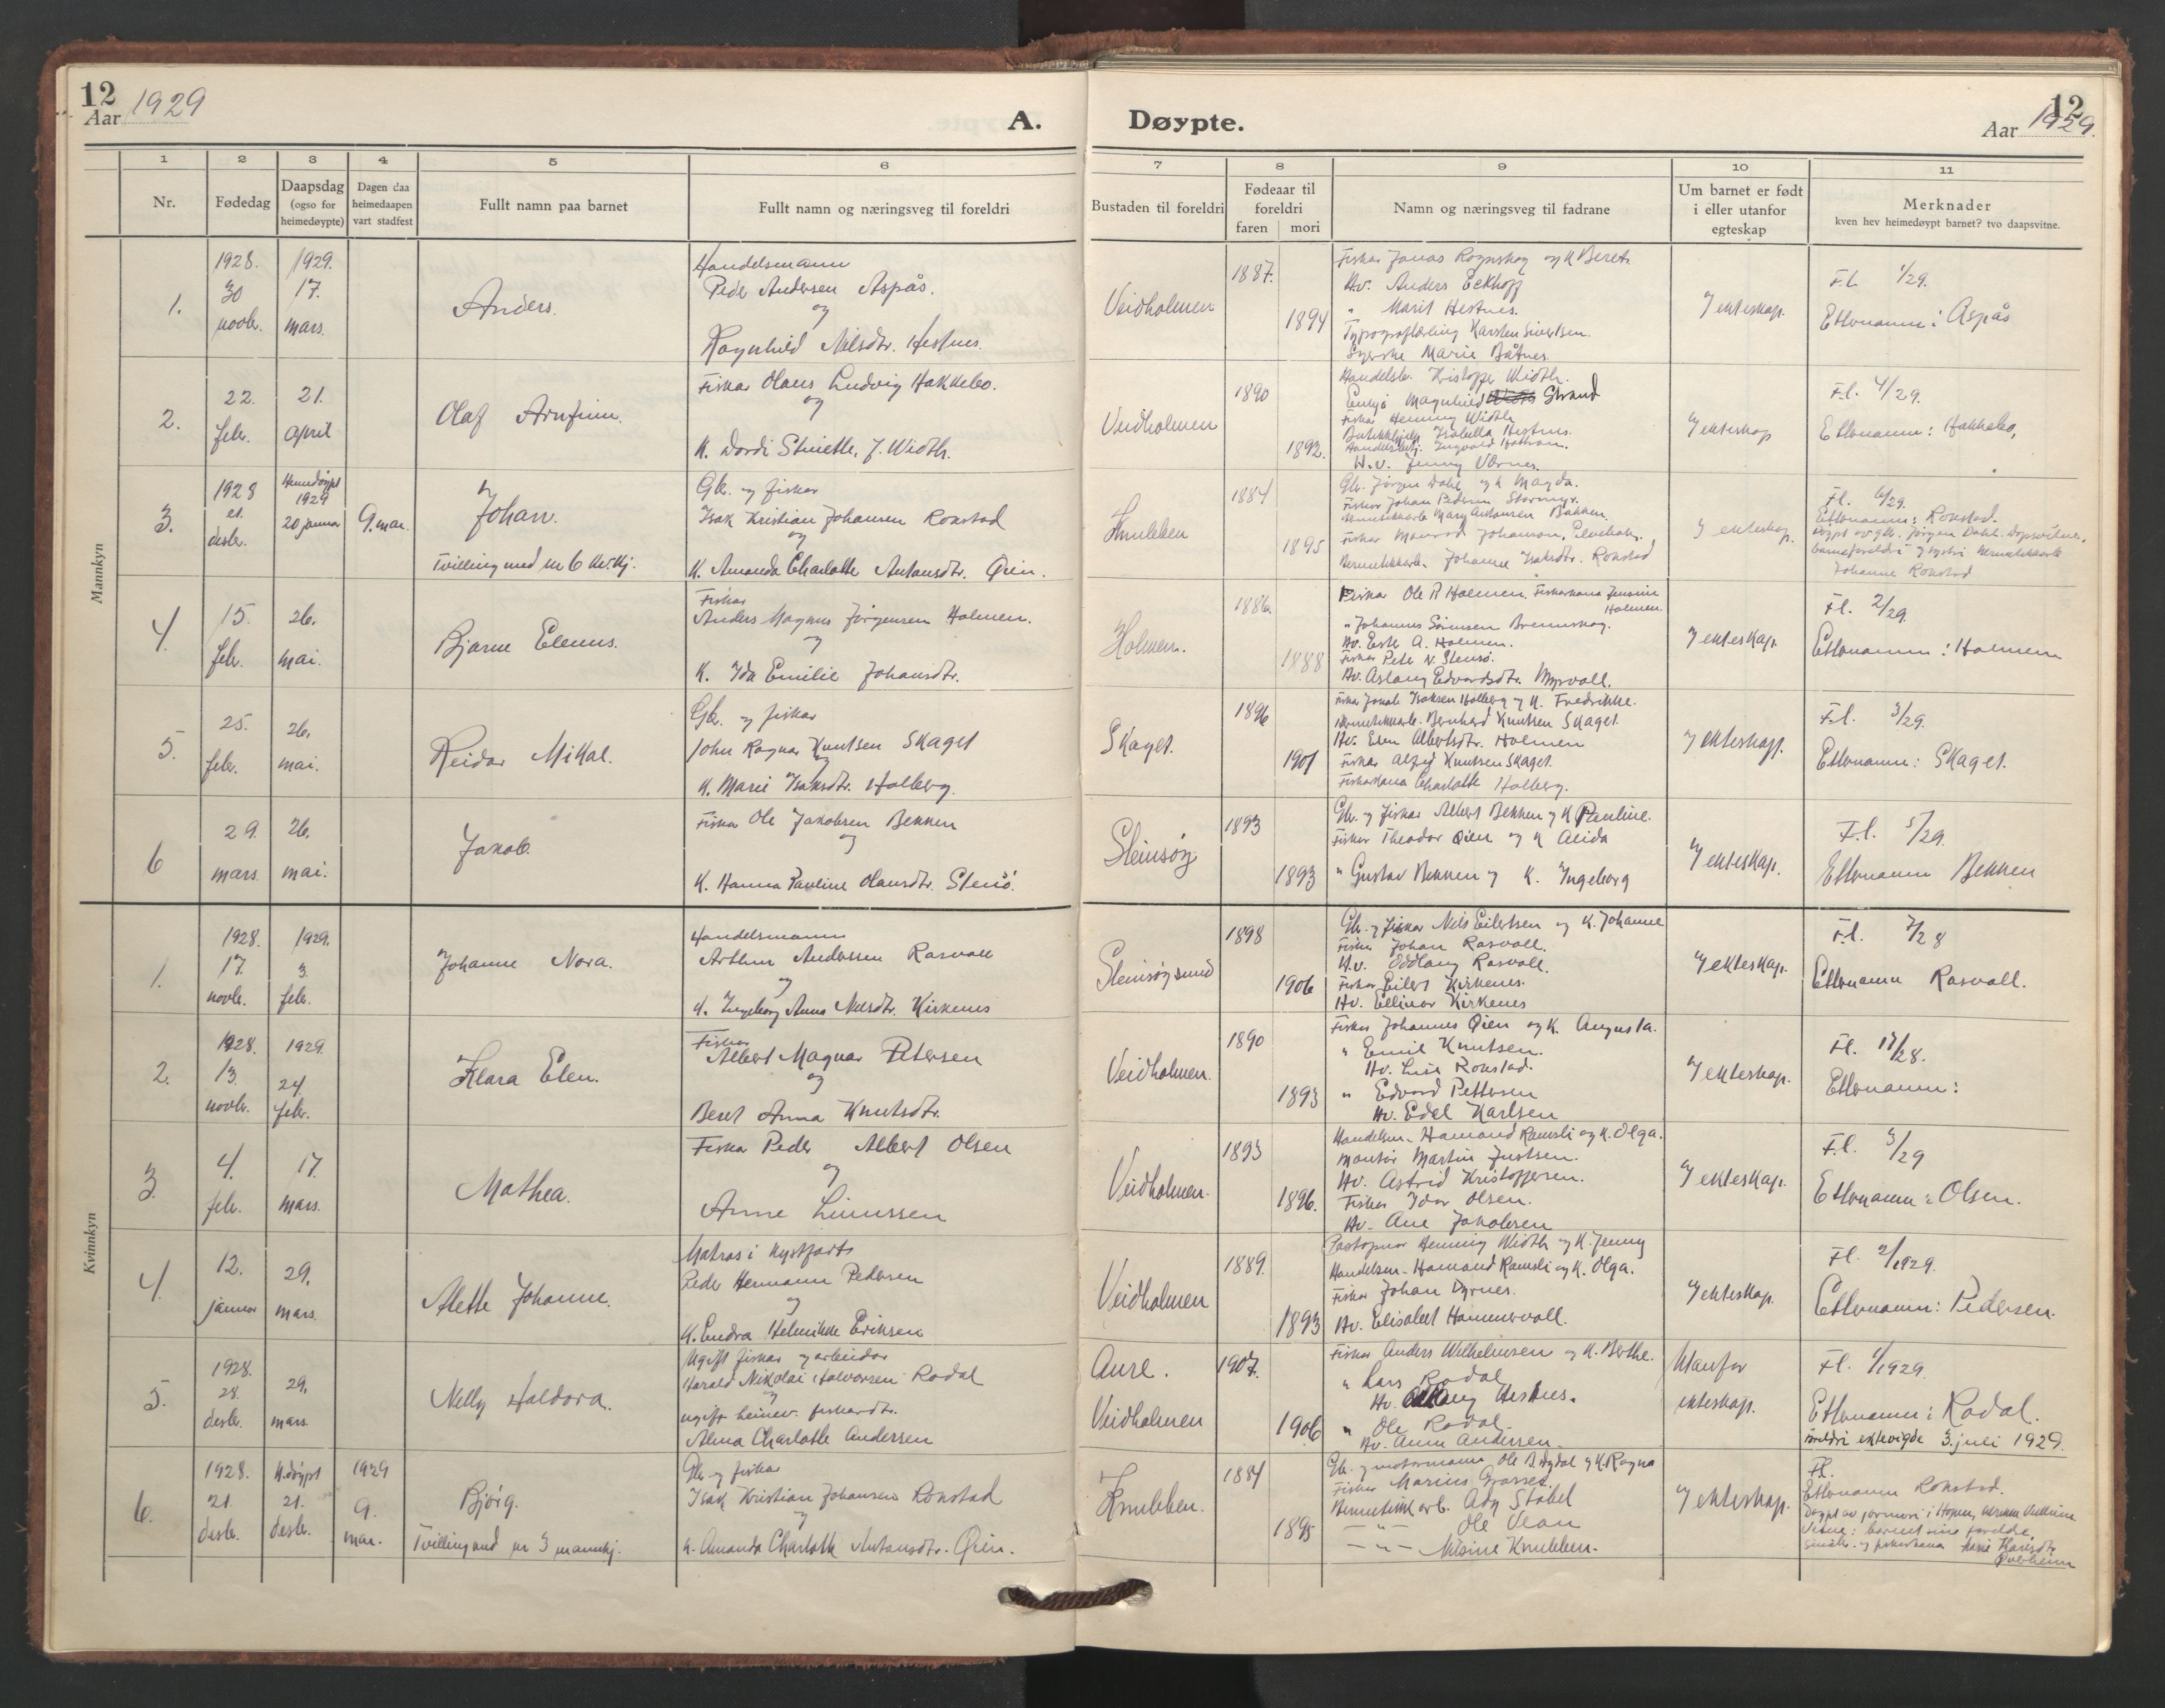 12
Aar 1929
A.
Døypte.
12
Aar 1929.
1 2 3 4 5 6 7 8 9 10 11
Nr.
Fødedag
Daapsdag
(ogso for
heimedøypte)
Dagen daa
heimedaapen
vart stadfest
Fullt namn paa barnet
Fullt namn og næringsveg til foreldri
Bustaden til foreldri
Fødeaar til
foreldri
faren mori
Namn og næringsveg til fadrane
Um barnet er født
i eller utanfor
egteskap
Merknader
kven hev heimedøypt barnet? tvo daapsvitne.
Mannkyn
1.
1928.
30
novbr.
1929.
17.
mars.
Anders.
Handelsmann
Peder Andersen Aspås.
og
Ragnhild Nilsdtr. Hestnes.
Veidholmen
1887.
1894
Fiskar Jonas Rognskog og K Beret.
Hv. Anders Eckhoff
" Marit Hestnes.
Typograflærling Karsten Sivertsen.
Syerske Marie Båtnes.
I ekteskap.
Fl. 1/29.
Etternamn: Aspås
2.
22.
febr.
21.
april
Olaf Arnfinn.
Fiskar Olaus Ludvig Hakkebo.
og
K. Dordi Stinette, f. Width.
Veidholmen
1890
1892.
Handelsb. Kristoffer Width.
Magnhild Strand
Fiskar Henning Width
Isabella Hestnes.
Ingvald
H.v. Jenny Værnes.
I ekteskap
Fl. 4/29.
Etternamn: Hakkebo.
3.
1928
21.
desbr.
Heimedøypt
1929
20 januar
9. mai.
Johan.
Tvilling med nr 6 kv.kj.
Gbr. og fiskar
Isak Kristian Johansen Rokstad
og
K. Amanda Charlotte Antonsdtr. Øien.
Knubben
1884
1895
Gbr. Jørgen Dahl og K Magda.
Fiskar Johan Pedersen Stormyr.
Mary Antonsen Bakken.
Fiskar Monrad Johanson,
Johanna Isaksdtr. Rokstad
I ekteskap.
Fl. 6/29.
Etternamn: Rokstad.
Døypt av gbr. Jørgen Dahl. Dåpsvitne,
Johanna Rokstad
4.
15.
febr.
26.
mai.
Bjarne Elenus.
Fiskar
Anders Magnus Jørgensen Holmen.
og
K. Ida Emilie Johansdtr.
Holmen.
1886.
1888
Fiskar Ole P. Holmen, Fiskarkona Jensine
Holmen.
" Johannes Sørensen Bremskog.
Hv. Ester A. Holmen.
Fiskar Peter N. Stensø.
Hv. Aslaug Edvardsdtr. Myrvoll.
I ekteskap.
Fl. 2/29.
Etternamn: Holmen
5.
25.
febr.
26.
mai.
Reidar Mikal.
Gbr. og fiskar
John Ragnar Knutsen Skaget
og
K. Marie Isaksdtr. Holberg.
Skaget.
1896
1901
Fiskar Jakob Isaksen Holberg og K. Fredrikke.
Bernhard Knutsen Skaget.
Hv. Elen Albertsdtr. Holmen
Fiskar Alfred Knutsen Skaget.
Fiskarkona Charlotte Holberg.
I ekteskap.
Fl. 3/29.
Etternamn: Skaget.
6
29.
mars.
26.
mai.
Jakob.
Fiskar Ole Jakobsen Bekken
og
K. Hanna Pauline Olausdtr. Stensö.
Steinsøy
1893
1893
Gbr. og fiskar Albert Bekken og K Pauline.
Fiskar Theodor Øien og K Alida
" Gustav Bekken og K. Ingeborg
I ekteskap.
Fl. 5/29.
Etternamn Bekken
Kvinnkyn
1.
1928.
17.
novbr.
1929.
3.
febr.
Johanne Nora.
Handelsmann
Arthur Andersen Rasvoll
og
K. Ingeborg Anna Nilsdtr. Kirkenes
Steinsøysund
1898
1906
Gbr. og fiskar Nils Eilertsen og K. Johanne
Fiskar Johan Rasvoll.
H.v. Oddlaug Rasvoll.
Fiskar Eilert Kirkenes.
Hv. Ellinor Kirkenes
I ekteskap.
Fl. 7/28
Etternamn Rasvoll.
2.
1928.
13.
novbr.
1929.
24.
febr.
Klara Elen.
Fiskar
Albert Magnar Petersen
og
Beret Anna Knutsdtr.
Veidholmen.
1890
1893
Fiskar Johannes Øien og K. Augusta.
" Emil Knutsen.
Hv. Lise Rokstad.
" Edvard Pettersen
Hv. Edel Karlsen
I ekteskap.
Fl. 17/28.
Etternamn:
3.
4.
febr.
17.
mars.
Mathea.
Fiskar Peder Albert Olsen
og
Anne Linussen
Veidholmen.
1893
1896.
Handelsm. Hamand Ramsli og K. Olga.
Montör Martin Justsen.
Hv. Astrid Kristoffersen.
Fiskar Idar Olsen.
Hv. Ane Jakobsen
I ekteskap.
Fl. 3/29
Etternamn: Olsen.
4.
12.
januar
29.
mars.
Alette Johanne.
Matros i kystfart
Peder Hermann Pedersen
og
K. Endra Helmikke Eriksen
Veidholmen
1889.
1893
Postopnar Henning Width og K. Jenny
Handelsm. Hamand Ramsli og K. Olga.
Fiskar Johan Dyrnes.
Hv. Elisabet Hammervoll.
I ekteskap.
Fl. 2/1929.
Etternamn: Pedersen.
5.
1928.
28.
desbr.
29.
mars.
Nelly Haldora.
Ugift fiskar og arbeidar
Harald Nikolai Halvorsen Rodal
og
ugift heimev. fiskardtr.
Alma Charlotte Andersen
Aure.
Veidholmen
1907.
1906
Fiskar Anders Wilhelmsen og K. Berthe.
" Lars Rodal
Hv. Hestnes.
" Ole Rodal.
Hv. Anna Andersen.
Utanfor
ekteskap.
Fl. 1/1929.
Etternamn: Rodal.
Foreldri ektevigde 3. juli 1929.
6.
1928.
21.
desbr.
H.døypt
21.
desbr.
1929
9.
mai.
Bjørg.
Tvilling med nr 3 mannkj.
Gbr. og fiskar
Isak Kristian Johansen Rokstad
og
K. Amanda Charlotte Antonsdtr. Øien.
Knubben.
1884
1895
Gbr. og motormann Ole Bogdal og K. Ragna
Fiskar Marius Grasset.
Ady Stabel
— " — Ole Vean
— " — Nisine Knubben.
I ekteskap.
Fl.
Etternamn Rokstad.
Døypt av jormori i Hopen,
Vitne: barnet sine foreldre,